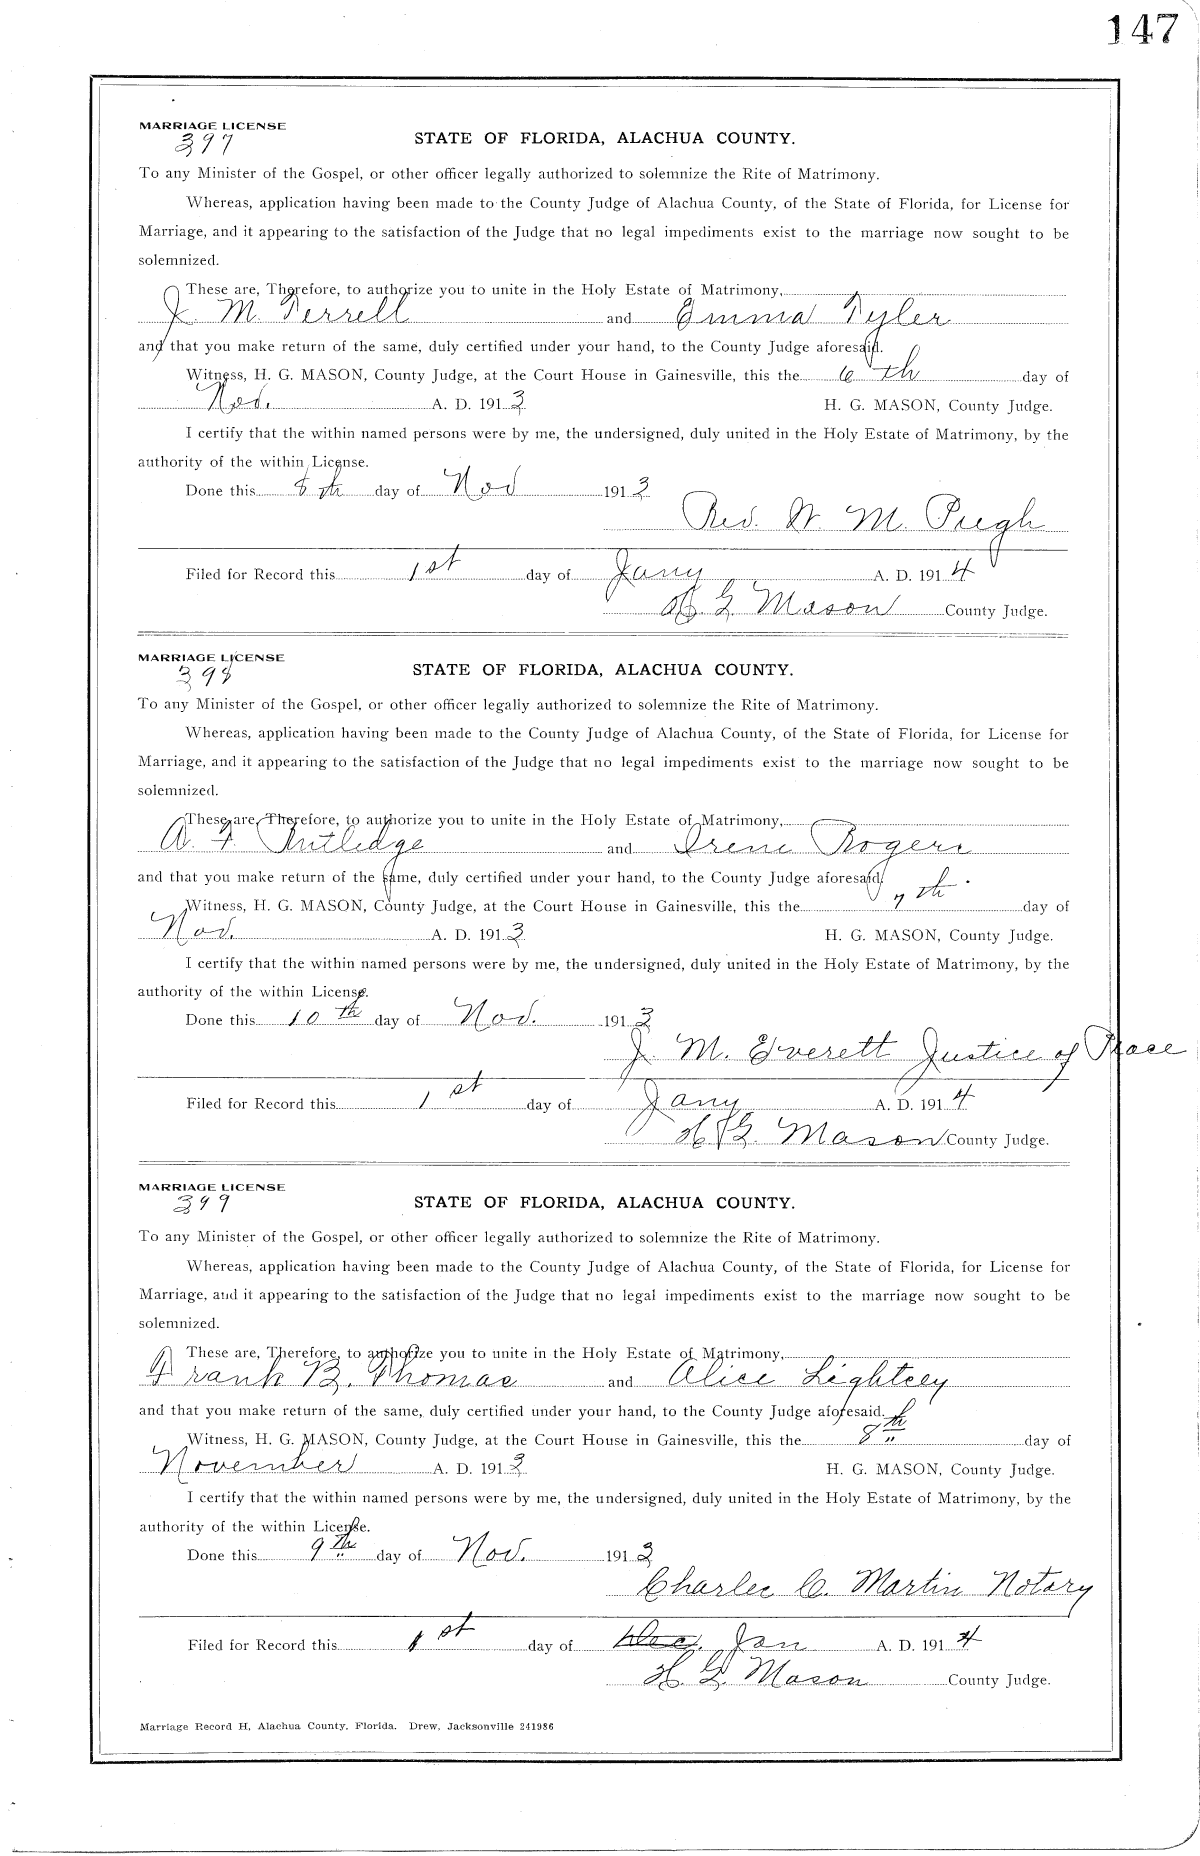 147
MARRIAGE LICENSE
397
STATE OF FLORIDA, ALACHUA COUNTY.
To any Minister of the Gospel, or other officer legally authorized to solemnize the Rite of Matrimony.
Whereas, application having been made to the County Judge of Alachua County, of the State of Florida, for License for
Marriage, and it appearing to the satisfaction of the Judge that no legal impediments exist to the marriage now sought to be
solemnized.
These are, Therefore, to authorize you to unite in the Holy Estate of Matrimony,
J. M. Terrell and Emma Tyler
and that you make return of the same, duly certified under your hand, to the County Judge aforesaid.
Witness, H. G. MASON, County Judge, at the Court House in Gainesville, this the 6th day of
Nov. A. D. 1913 H. G. MASON, County Judge.
I certify that the within named persons were by me, the undersigned, duly united in the Holy Estate of Matrimony, by the
authority of the within License.
Done this 8th day of Nov 1913
Rev. W. M. Pugh
Filed for Record this 1st day of Jany A. D. 1914
H. G. Mason County Judge.
MARRIAGE LICENSE
398
STATE OF FLORIDA, ALACHUA COUNTY.
To any Minister of the Gospel, or other officer legally authorized to solemnize the Rite of Matrimony.
Whereas, application having been made to the County Judge of Alachua County, of the State of Florida, for License for
Marriage, and it appearing to the satisfaction of the Judge that no legal impediments exist to the marriage now sought to be
solemnized.
These are, Therefore, to authorize you to unite in the Holy Estate of Matrimony,
A. F. Rutledge and Irene Rogers
and that you make return of the same, duly certified under your hand, to the County Judge aforesaid.
Witness, H. G. MASON, County Judge, at the Court House in Gainesville, this the 7th day of
Nov. A. D. 1913 H. G. MASON, County Judge.
I certify that the within named persons were by me, the undersigned, duly united in the Holy Estate of Matrimony, by the
authority of the within License.
Done this 10th day of Nov. 1913
J. M. Everett Justice of Peace
Filed for Record this 1st day of Jany A. D. 1914
H. G. Mason County Judge.
MARRIAGE LICENSE
399
STATE OF FLORIDA, ALACHUA COUNTY.
To any Minister of the Gospel, or other officer legally authorized to solemnize the Rite of Matrimony.
Whereas, application having been made to the County Judge of Alachua County, of the State of Florida, for License for
Marriage, and it appearing to the satisfaction of the Judge that no legal impediments exist to the marriage now sought to be
solemnized.
These are, Therefore, to authorize you to unite in the Holy Estate of Matrimony,
Frank B. Thomas and Alice Lightsey
and that you make return of the same, duly certified under your hand, to the County Judge aforesaid.
Witness, H. G. MASON, County Judge, at the Court House in Gainesville, this the 8th day of
November A. D. 1913 H. G. MASON, County Judge.
I certify that the within named persons were by me, the undersigned, duly united in the Holy Estate of Matrimony, by the
authority of the within License.
Done this 9th day of Nov. 1913
Charles C. Martin Notary
Filed for Record this 1st day of Dec. Jan A. D. 1914
H. G. Mason County Judge.
Marriage Record H, Alachua County, Florida. Drew, Jacksonville 241986